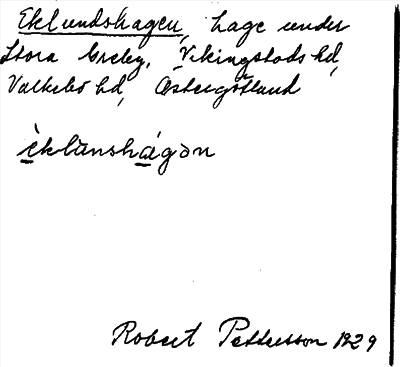 Eklundshagen, Lage under
Stora Greby, Vikingstads sd,
Valkebo hd, Östergötland
èklùnshágən
Robert Pettersson 1929